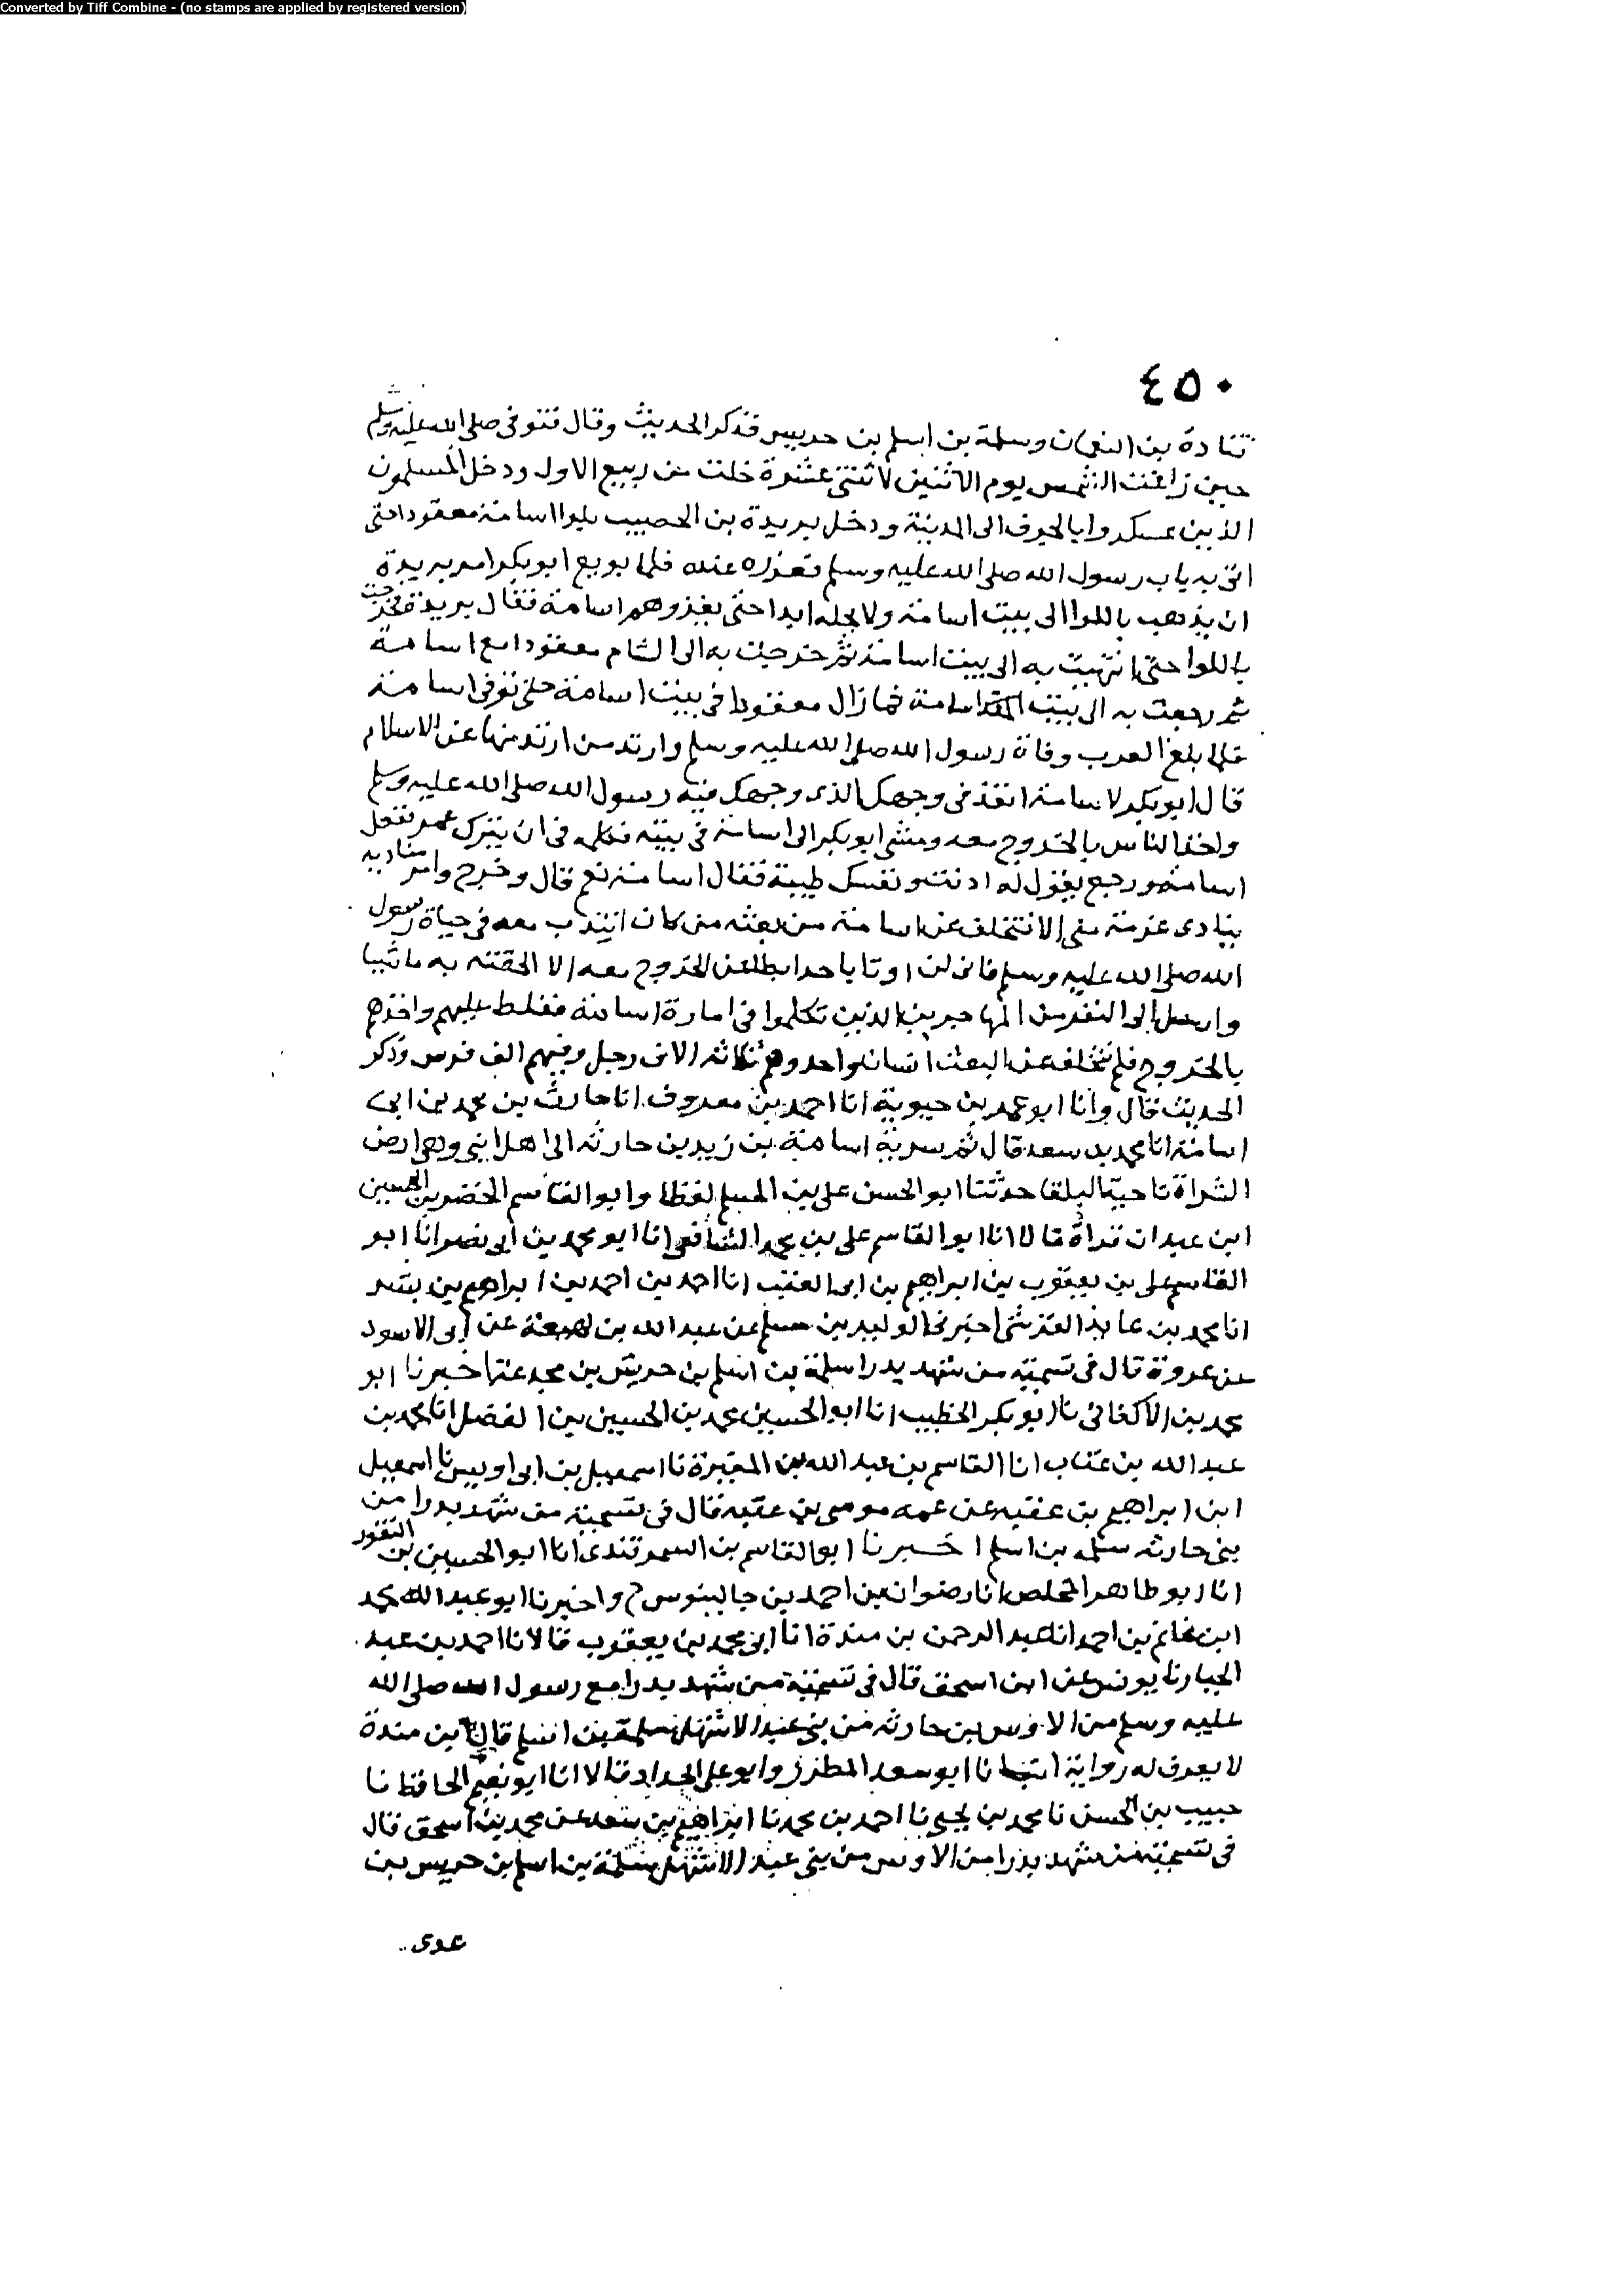 Converted by Tiff Combine - (no stamps are applied by registered version)
٤٥٠
قتادة بن النعمان وسلمة بن اسلم بن حريس فذكر الحديث وقال فتوفى صلى الله عليه وسلم
حين زاغت الشمس يوم الاثنين لاثنتى عشرة خلت من ربيع الاول ودخل المسلمون
الذين عسكروا بالجرف الى المدينة ودخل بريدة بن الحصيب بلوا اسامة معقودا حتى
اتى به باب رسول الله صلى الله عليه وسلم فغرزه عنده فلما بويع ابو بكر امر بريدة
ان يذهب باللوا الى بيت اسامة ولا يحله ابدا حتى يغزوهم اسامة فقال بريدة فخرجت
باللوا حتى انتهيت به الى بيت اسامة ثم خرجت به الى الشام معقودا مع اسامة
ثم رجعت به الى بيت اسامة فما زال معقودا فى بيت اسامة حتى توفى اسامة
فلما بلغ العرب وفاة رسول الله صلى الله عليه وسلم وارتد من ارتد منها عن الاسلام
قال ابو بكر لاسامة انفذ فى وجهك الذى وجهك فيه رسول الله صلى الله عليه وسلم
واخذ الناس بالخروج معه ومشى ابو بكر الى اسامة فى بيته فكلمه فى ان يترك عمر ففعل
اسامة ورجع يقول له اذنت ونفسك طيبة فقال اسامة نعم قال وخرج وامر مناديه
ينادى عزمة منى الا يتخلف عن اسامة من بعثه من كان انتدب معه فى حياة رسول
الله صلى الله عليه وسلم فانى لن اوتا باحد ابطا عن الخروج معه الا الحقته به ماشيا
وارسل الى النفر من المهاجرين الذين تكلموا فى امارة اسامة فغلظ عليهم واخذهم
بالخروج فلم يتخلف عن البعث انسان واحد وهم ثلاثة الاف رجل وفيهم الف فرس وذكر
الحديث قال وانا ابو عمر بن حيوية انا احمد بن معروف انا حارث بن محمد بن ابى
اسامة انا محمد بن سعد قال ثم سرية اسامة بن زيد بن حارثه الى اهل ابنى وهى ارض
الشراة ناحية البلقا حدثنا ابو الحسن على بن المسلم لفظا وابو القاسم الخضر بن الحسين
ابن عبدان قراة قالا انا ابو القاسم على بن محمد الشافعى انا ابو محمد بن ابى نصر انا ابو
القاسم على بن يعقوب بن ابراهيم بن ابى العقب انا احمد بن احمد بن ابراهيم بن بشر
انا محمد بن عايذ القرشى اخبرنى الوليد بن مسلم عن عبد الله بن لهيعة عن ابى الاسود
عن عروة قال فى تسمية من شهد بدرا سلمة بن اسلم بن حريش بن مجدعة اخبرنا ابو
محمد بن الاكفانى نا ابو بكر الخطيب انا ابو الحسين محمد بن الحسين بن الفضل انا محمد بن
عبد الله بن عتاب انا القاسم بن عبد الله بن المغيرة نا اسمعيل بن ابى اويس نا اسمعيل
ابن ابراهيم بن عقبه عن عمه موسى بن عقبه قال فى تسمية من شهد بدرا من
بنى حارثه سلمه بن اسلم اخبرنا ابو القاسم بن السمرقندى انا ابو الحسين بن النقور
انا ابو طاهر المخلص انا رضوان بن احمد بن جالينوس ح واخبرنا ابو عبد الله محمد
ابن غانم بن احمد انا عبد الرحمن بن مندة انا ابى محمد بن يعقوب قالا نا احمد بن عبد
الجبار نا يونس عن ابن اسحق قال فى تسمية من شهد بدرا مع رسول الله صلى الله
عليه وسلم من الاوس بن حارثه من بنى عبد الاشهل سلمة بن اسلم قال ابن مندة
لا يعرف له رواية انبانا ابو سعد المطرز وابو على الحداد قالا انا ابو نعيم الحافظ نا
حبيب بن الحسن نا محمد بن يحيى نا احمد بن محمد نا ابراهيم بن سعد عن محمد بن اسحق قال
فى تسمية من شهد بدرا من الاوس من بنى عبد الاشهل سلمة بن اسلم بن حريس بن
عدى